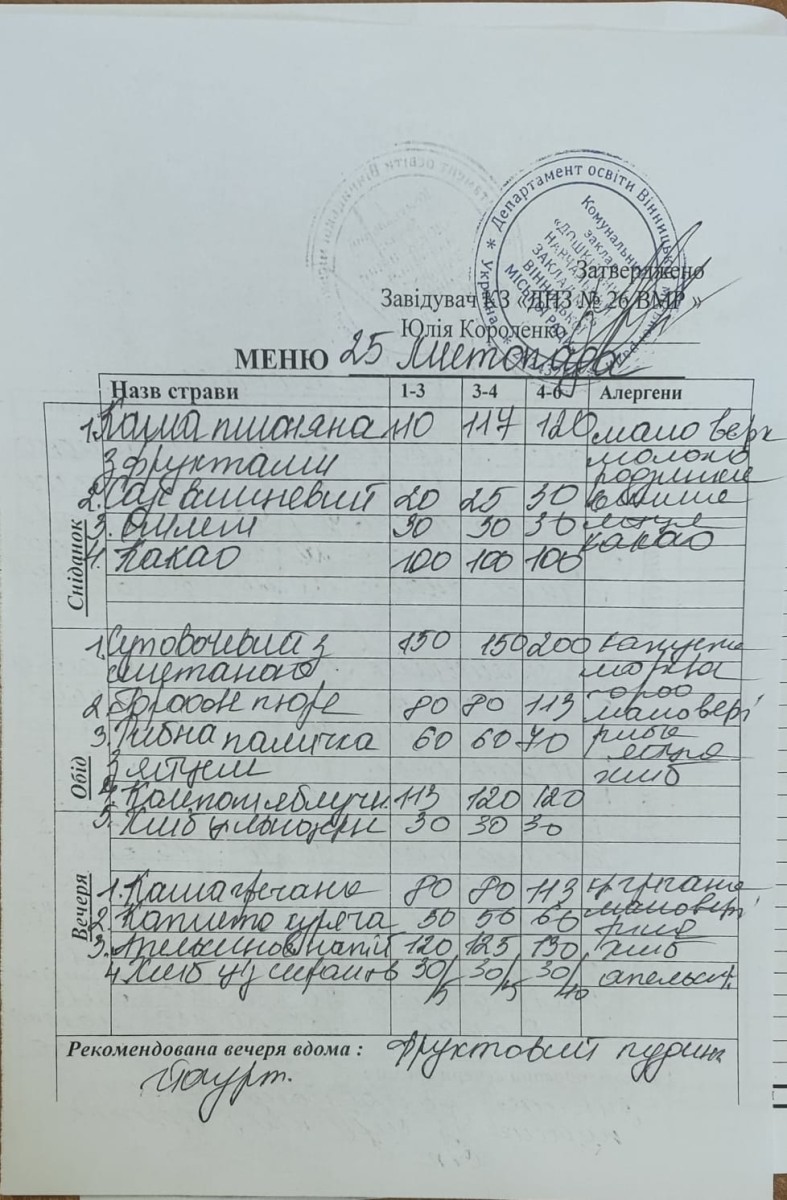 Департамент освіти Вінницької
Комунальний
заклад
«ДОШКІЛЬНИЙ
НАВЧАЛЬНИЙ
ЗАКЛАД
ВІННИЦЬКОЇ
МІСЬКОЇ РАДИ
Україна
Затверджено
Завідувач КЗ «ДНЗ № 26 ВМР »
Юлія Короленко
МЕНЮ 25 листопада
Назв страви 1-3 3-4 4-6 Алергени
Сніданок
1. Каша пшоняна 110 117 120 масло верш
з фруктами молоко
родзинки
2. Сік вишневий 20 25 30 вишня
3. Омлет 30 30 30 яйця
4. Какао 100 100 100 какао
Обід
1. Суп овочевий з 150 150 200 капуста
сметаною морква
горох
2. Горохове пюре 80 80 113 масло верш
3. Рибна паличка 60 60 70 риба
з яйцем яйця
хліб
4. Компот яблучн 113 120 120
5. Хліб цільнозерн 30 30 30
Вечеря
1. Каша гречана 80 80 113 гречана
масло верш
2. Котлета куряча 50 50 60
3. Апельсинов напій 120 125 130 хліб
4. Хліб ц/з сиром 30/5 30/5 30/10 апельсин
Рекомендована вечеря вдома : Фруктовий пудинг
Йогурт.